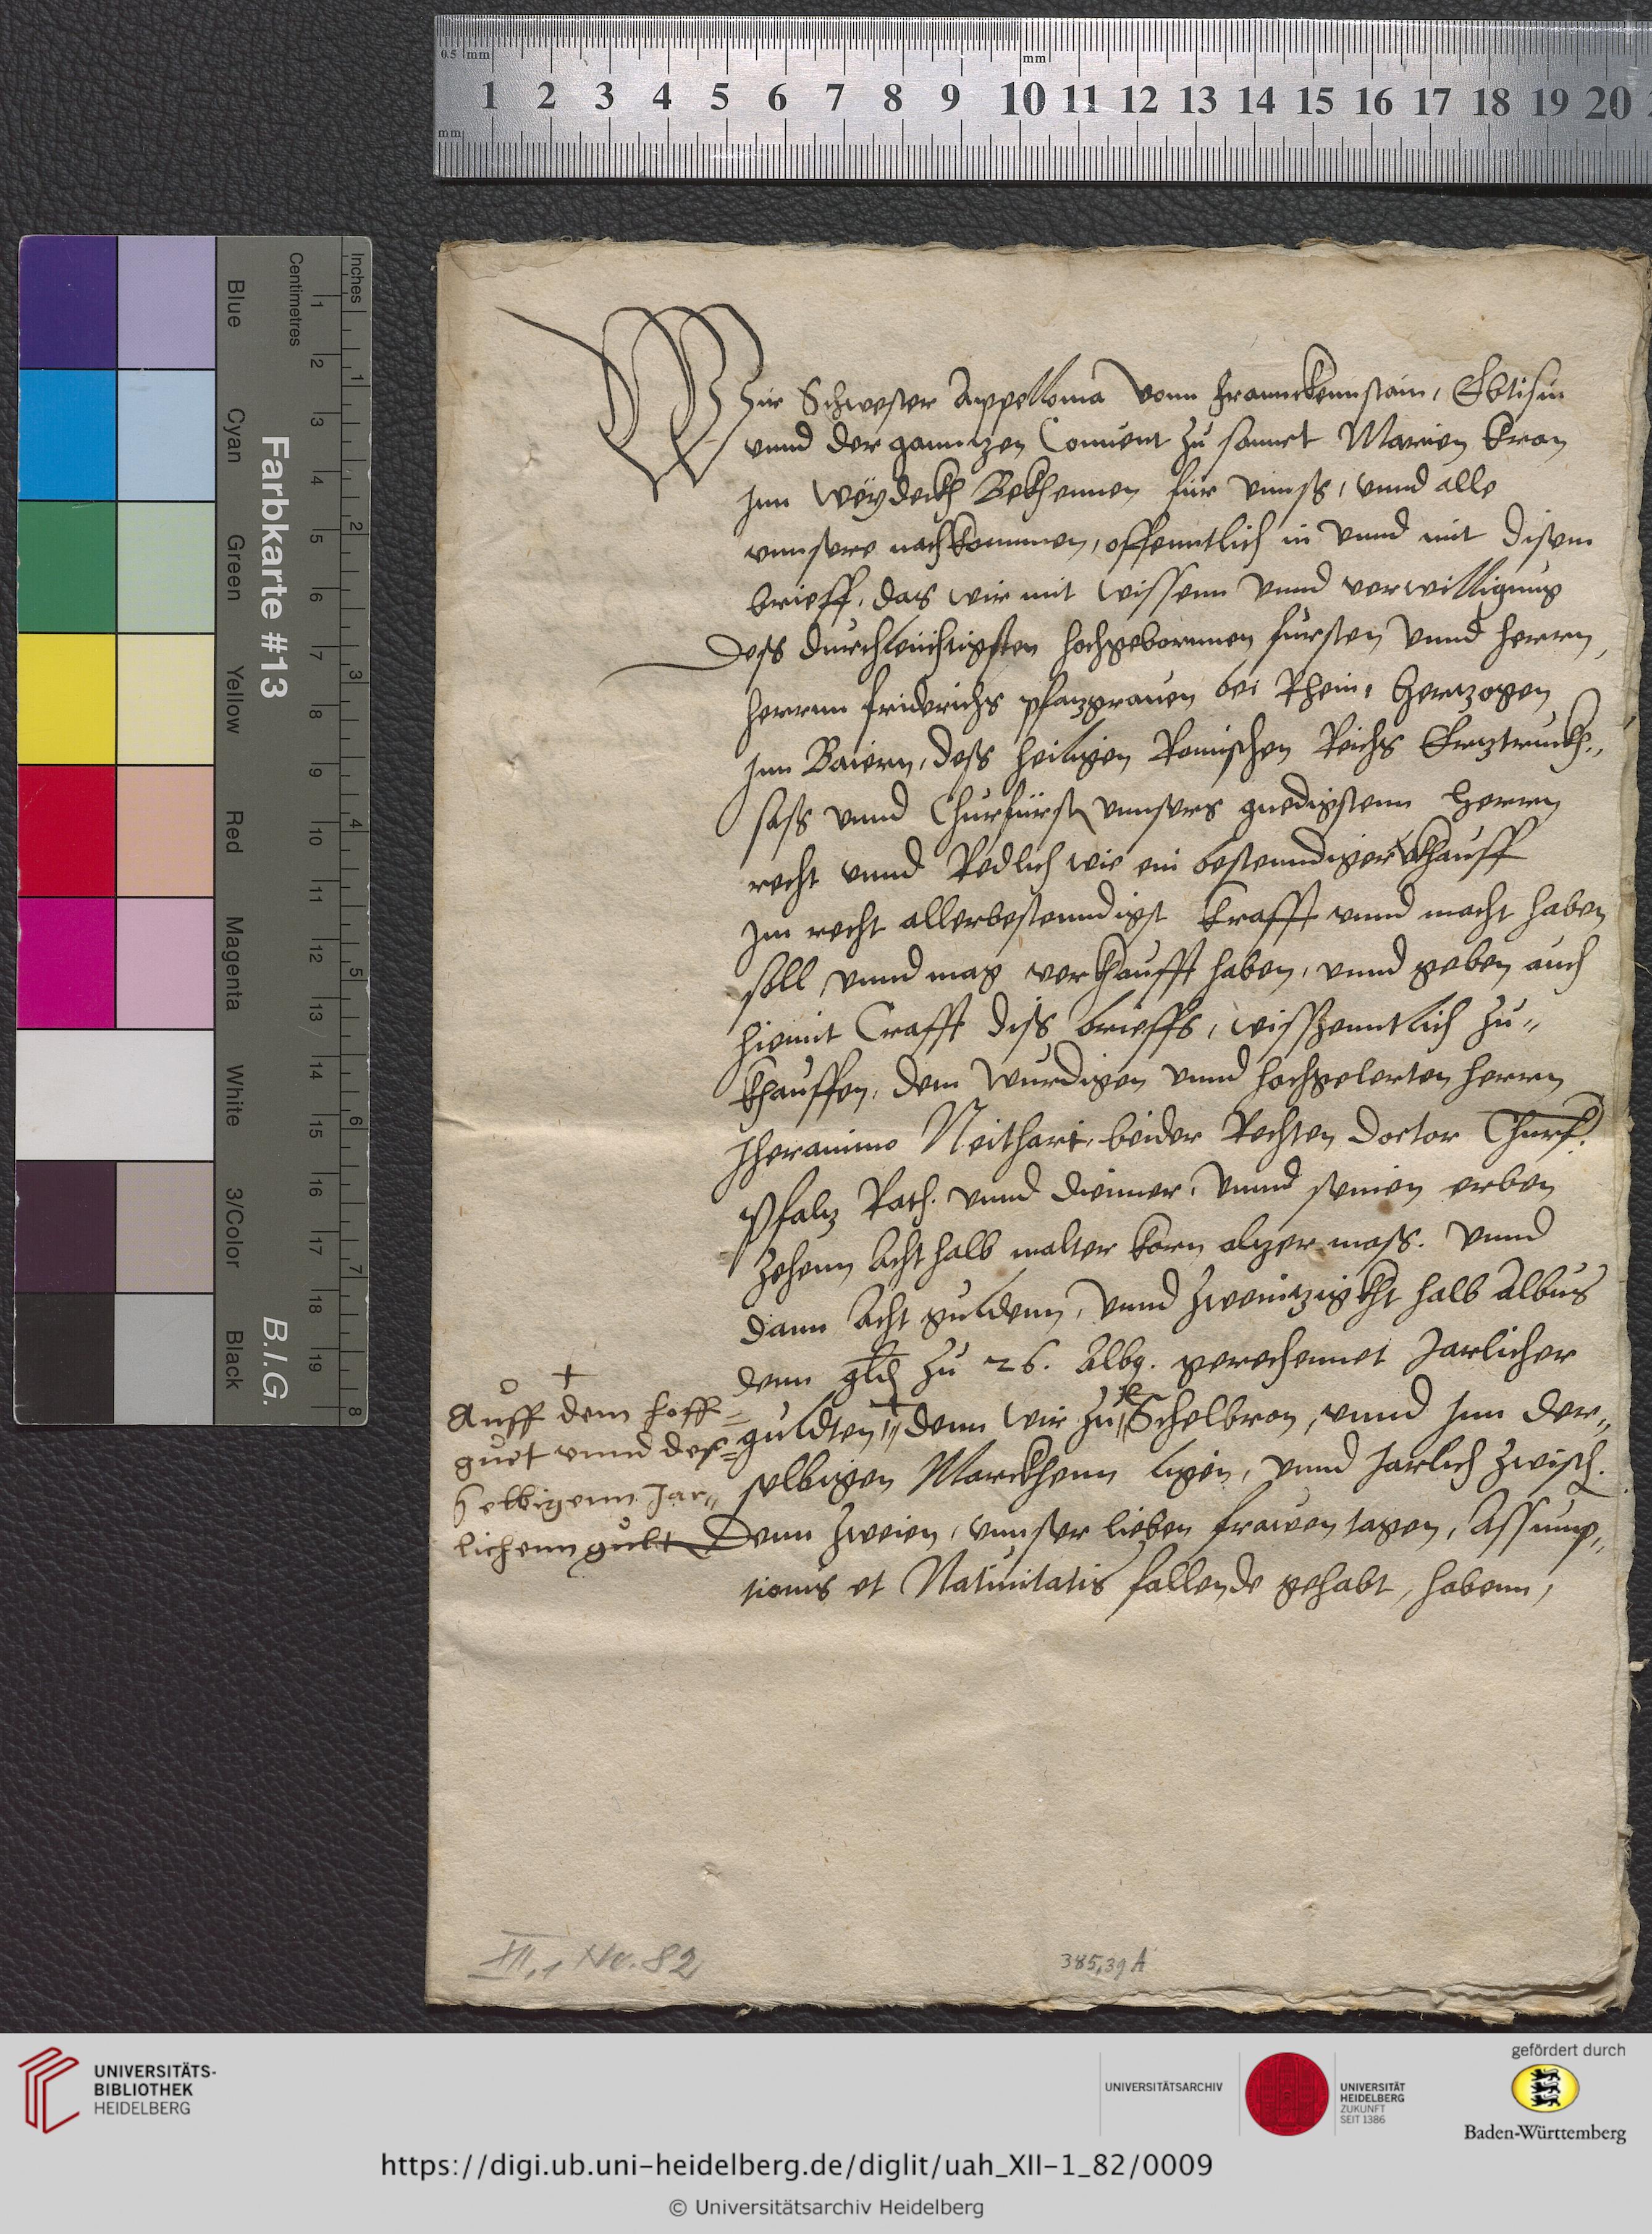 0.5 mm
mm
mm
1 2 3 4 5 6 7 8 9 10 11 12 13 14 15 16 17 18 19 20
Inches
Centimetres
Farbkarte #13
B.I.G.
Blue
Cyan
Green
Yellow
Red
Magenta
White
3/Color
Black
Wir Schwester Appellonia vonn Franckennstain, Ebtissin
vnnd der ganntzen Conuent zu sannct Marien Kron
Inn Weydeckh Bekhennen für vnnss, vnnd alle
vnnsere nachkommen, offenntlich in vnnd mit disem
brieff, das wir mit wissenn vnnd verwilligung
dess durchleuchtigsten hochgebornnen fursten vnnd herrn,
herrnn friderichs pfaltzgrauen bei Rhein, Hertzogen
Inn Baiern, dess heiligen Romischen Reichs Ertztruckh„
sass vnnd Churfürst, vnnsers gnedigstenn Herrn
recht vnnd Redlich wie ein bestenndiger khauff
Im recht allerbestenndigst krafft vnnd macht haben
soll vnnd mag verkhaufft haben, vnnd geben auch
hiemit Crafft diss brieffs, wisszenntlich zu„
khauffen, dem wurdigen vnnd hochgelerten herrn
Jheronimo Neithart, beider Rechten doctor Churf.
Pfaltz Rath. vnnd dienner, vnnd seinen erben
zehenn Achthalb malter korn altzer mass. vnnd
dann Acht guldenn, vnnd zwenntzigkht halb Albus
denn gld zu 26. Albq. gerechennet Jarlicher
gulten, denn wir zu Schelbron, vnnd Inn der„
selbigen Marckhenn ligen, vnnd Jarlich zwisch.
denn zweien, vnnser lieben frawen tagen, Assump„
tionis et Natiuitatis fallende gehabt, habenn,
+
Auff dem hoff=
guet vnnd des=
selbigenn Jar„
lichenn gult
XII,1 No. 82
385,39 A
UNIVERSITÄTS-
BIBLIOTHEK
HEIDELBERG
UNIVERSITÄTSARCHIV
UNIVERSITÄT
HEIDELBERG
ZUKUNFT
SEIT 1386
gefördert durch
Baden-Württemberg
https://digi.ub.uni-heidelberg.de/diglit/uah_XII-1_82/0009
© Universitätsarchiv Heidelberg